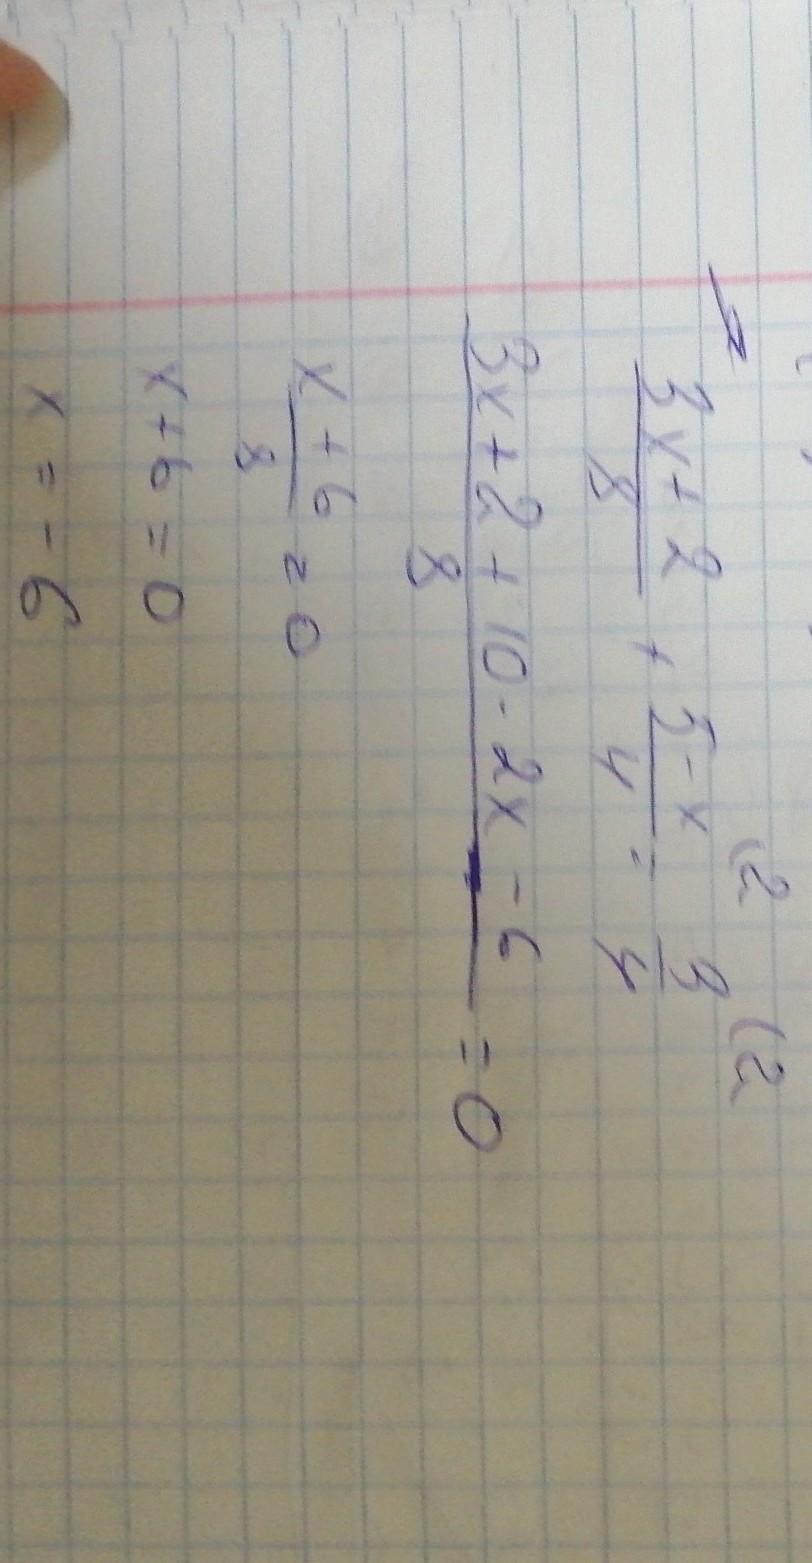 (2 (2
3x+2/8 + 5-x/4 = 3/4
3x+2+10-2x-6/8 = 0
x+6/8 = 0
x+6=0
x=-6